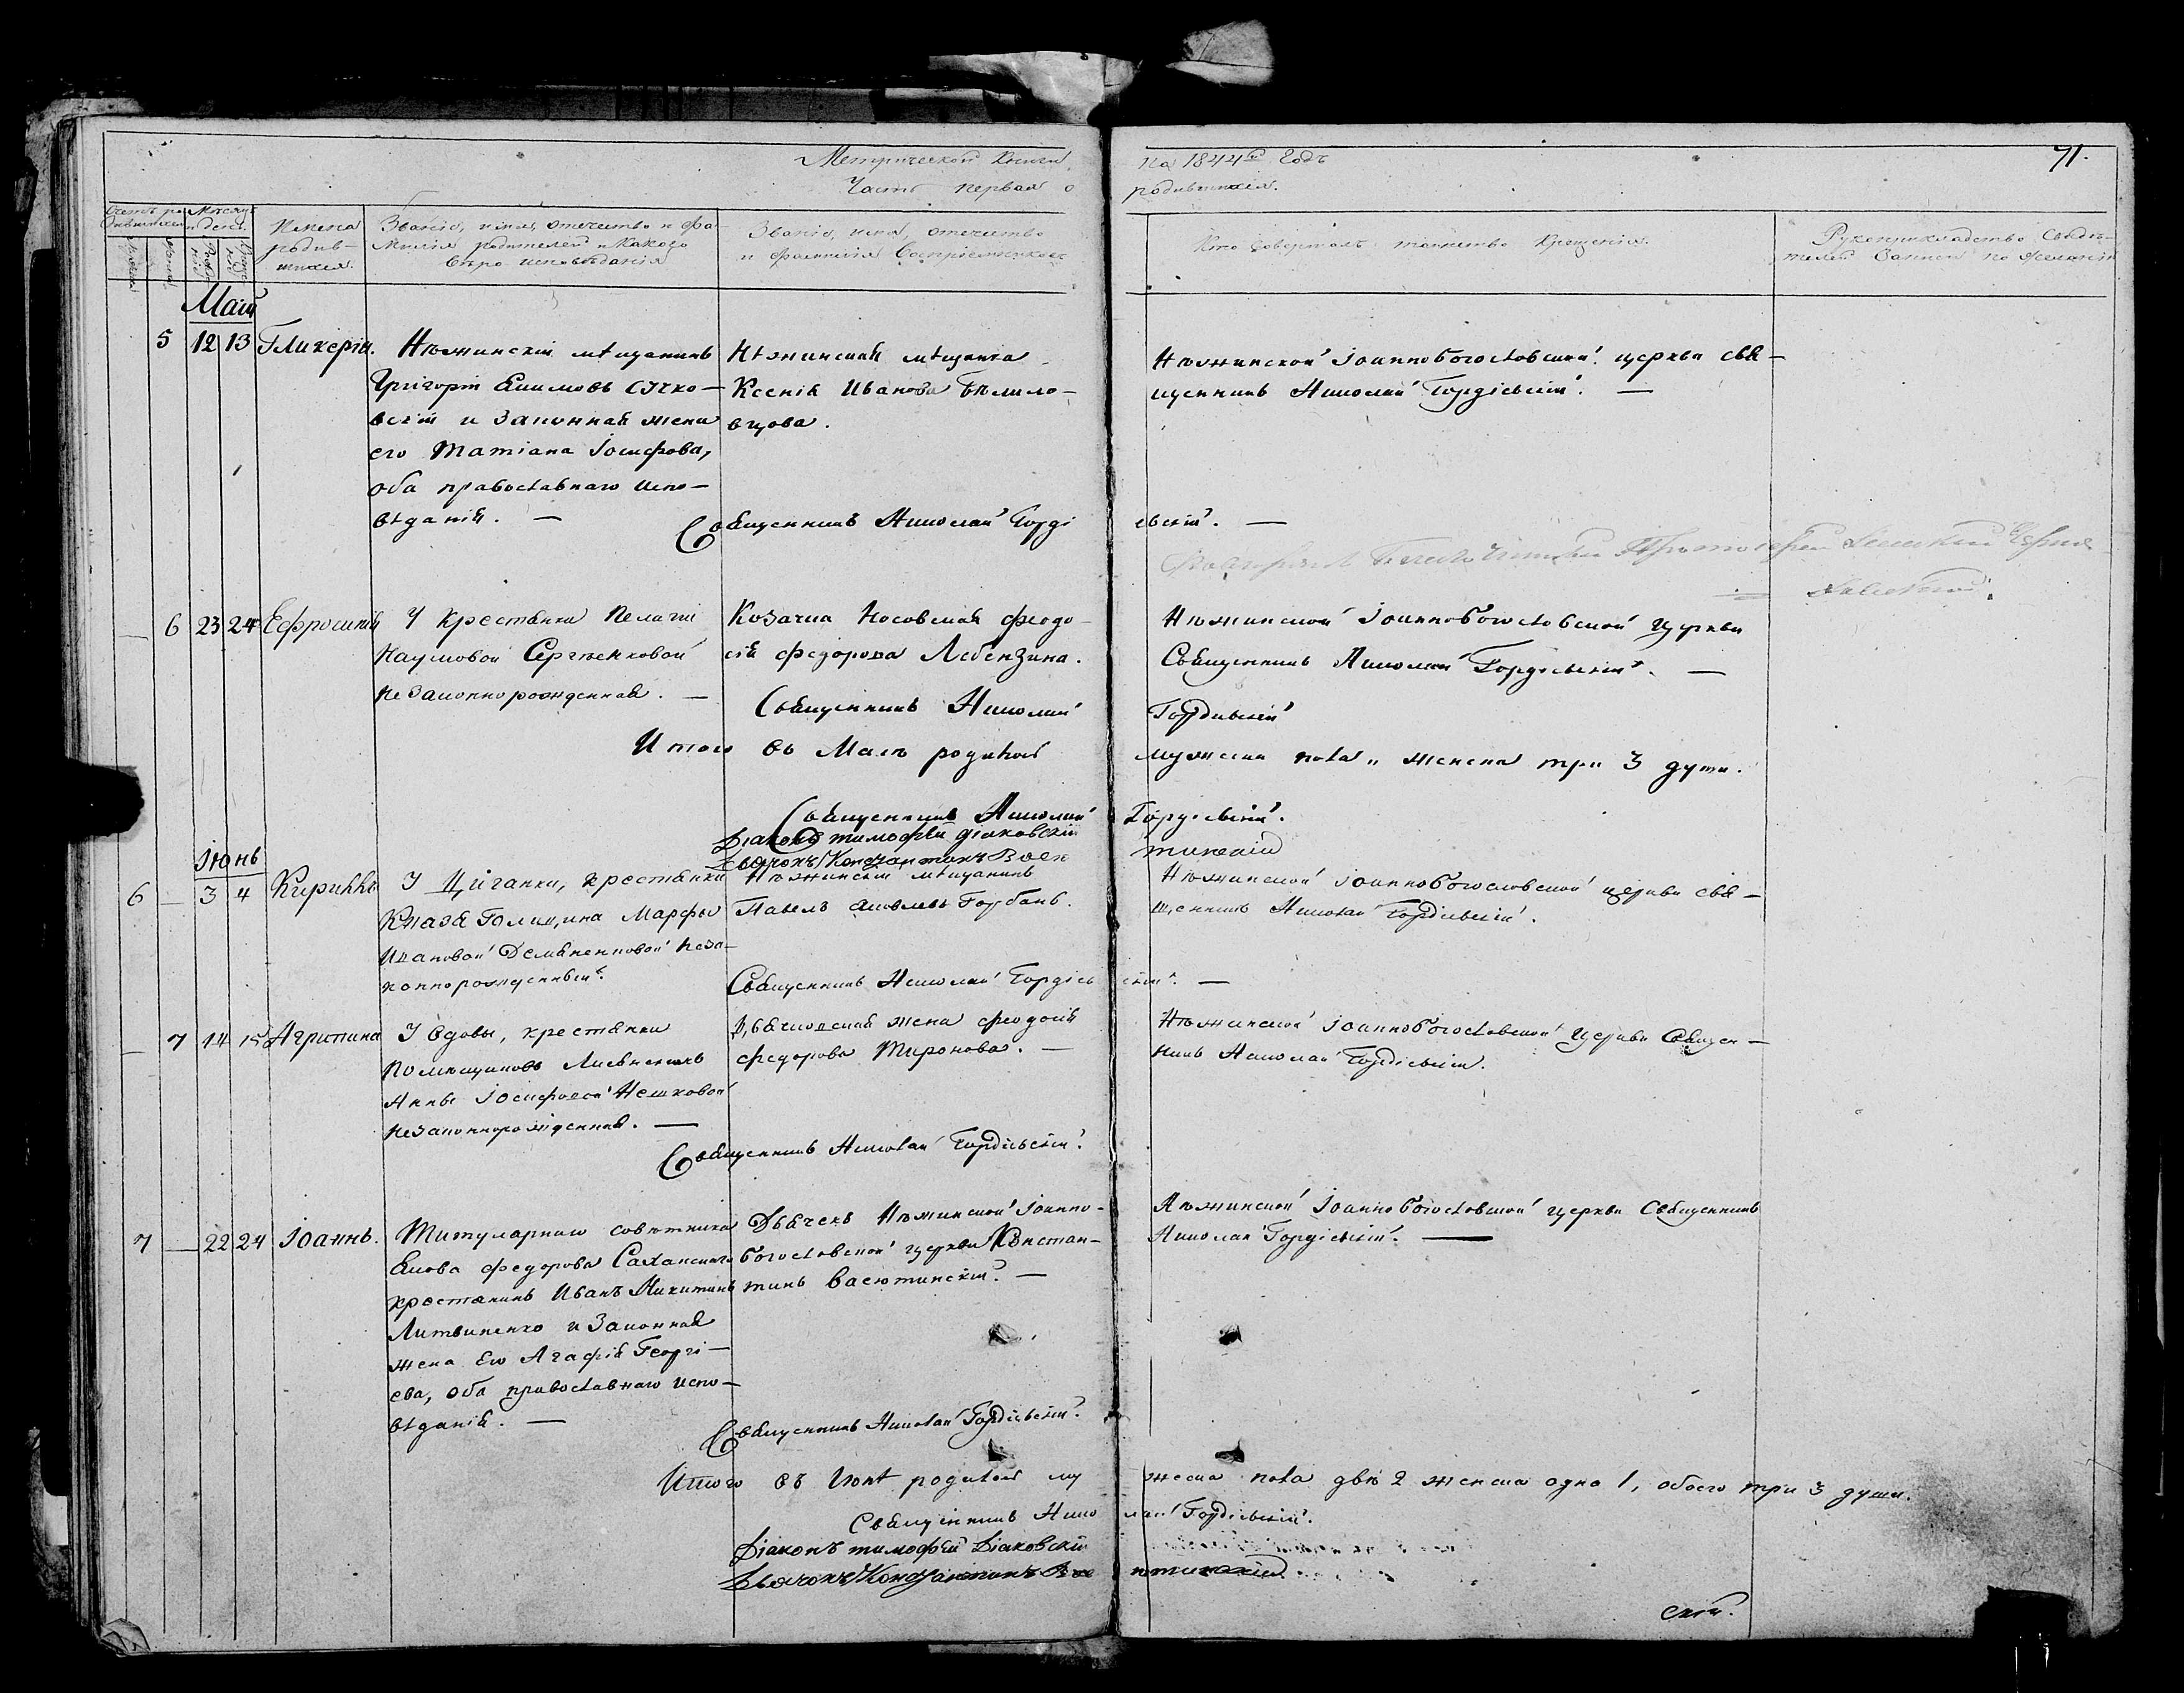 Метрической Книги на 1844й Годъ 71.
Часть первая о родившихся.
Счетъ родившихся
Мѣсяцъ и день.
Имена родив-
шихся.
Званіе, имя, отечество и фа-
милія родителей и какого
вѣроисповѣданія
Званіе, имя, отечество
и фамилія Воспріемниковъ
Кто совершалъ таинство Крещенія.
Рукоприкладство Свидѣ-
телей Записи по желанію
Май
5 12 13 Гликерія.
Нѣжинскій мѣщанинъ
Григорій Якимовъ
и Законная жена
его Татіана Іосифова,
оба православнаго испо-
вѣданія. —
Нѣжинская мѣщанка
Ксенія Иванова Бѣлило-
вцова.
Нѣжинской Іоаннобогословской церкви свя-
щенникъ Николай Гордіевскій. —
Священникъ Николай Гордіевскій. —
Протоіерей
— 6 23 24 Ефросинія
У крестянки Пелагіи
Наумовой Сергѣенковой
незаконнорожденная. —
Козачка Носовская Феодо-
сія Федорова Лебензина.
Нѣжинской Іоаннобогословской Церкви
Священникъ Николай Гордіевскій. —
Священникъ Николай Гордіевскій
Итого въ Маѣ родилось мужеска пола " женска три 3 души.
Священникъ Николай Гордіевскій.
Діаконъ Тимофей Діаковскій
Дьячокъ Константинъ Васютинскій
Іюнь
6 — 3 4 Кириллъ
У Циганки, крестянки
Князя Голицина Марфы
Ивановой Демяненковой неза-
коннорожденный.
Нѣжинскій мѣщанинъ
Павелъ Яковлевъ Горбань.
Нѣжинской Іоаннобогословской церкви свя-
щенникъ Николай Гордіевскій.
Священникъ Николай Гордіевскій. —
— 7 14 15 Агрипина
У вдовы, крестянки
Помѣщиковъ
Анны Іосифовой Нешковой
незаконнорожденная. —
Дьячковская жена Феодосія
Федорова Миронова. —
Нѣжинской Іоаннобогословской Церкви Священ-
никъ Николай Гордіевскій.
Священникъ Николай Гордіевскій.
7 — 22 24 Іоаннъ.
Титулярнаго совѣтника
Якова Федорова Саханскаго
крестянинъ Иванъ Никитинъ
Литвиненко и Законная
жена его Агафія Георгі-
ева, оба православнаго испо-
вѣданія. —
Дьячекъ Нѣжинской Іоанно-
богословской церкви Констан-
тинъ Васютинскій. —
Нѣжинской Іоаннобогословской церкви Священникъ
Николай Гордіевскій. —
Священникъ Николай Гордіевскій.
Итого въ Іюнѣ родилось мужеска пола двѣ 2 женска одна 1, обоего три 3 души.
Священникъ Николай Гордіевскій.
Діаконъ Тимофей Діаковскій
Дьячокъ Константинъ Васютинскій